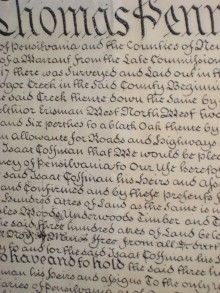 Thomas Penn
of Pensilvania and the Counties of New
of a Warrant from the Late Commission
17 there was Surveyed and Laid out in th
Creek in the Said County Beginnin
he said Creek thence down the Same by
West North West two
Six perches to a black Oak thence by
n allowance for Roads and Highways
Isaac Coffman that We would be pleas
ncy of Pensylvania to Our Use
said Isaac Coffman his Heirs and assi
and Confirmed and by these presents
Hundred acres of Land as the same is
Woods Underwoods Timber and
he said three hundred acres of Land
free from all
to and for the said Isaac Coffman his
To have and to hold the said three hu
man his heirs and assigns To the only
acres of Pensylvania